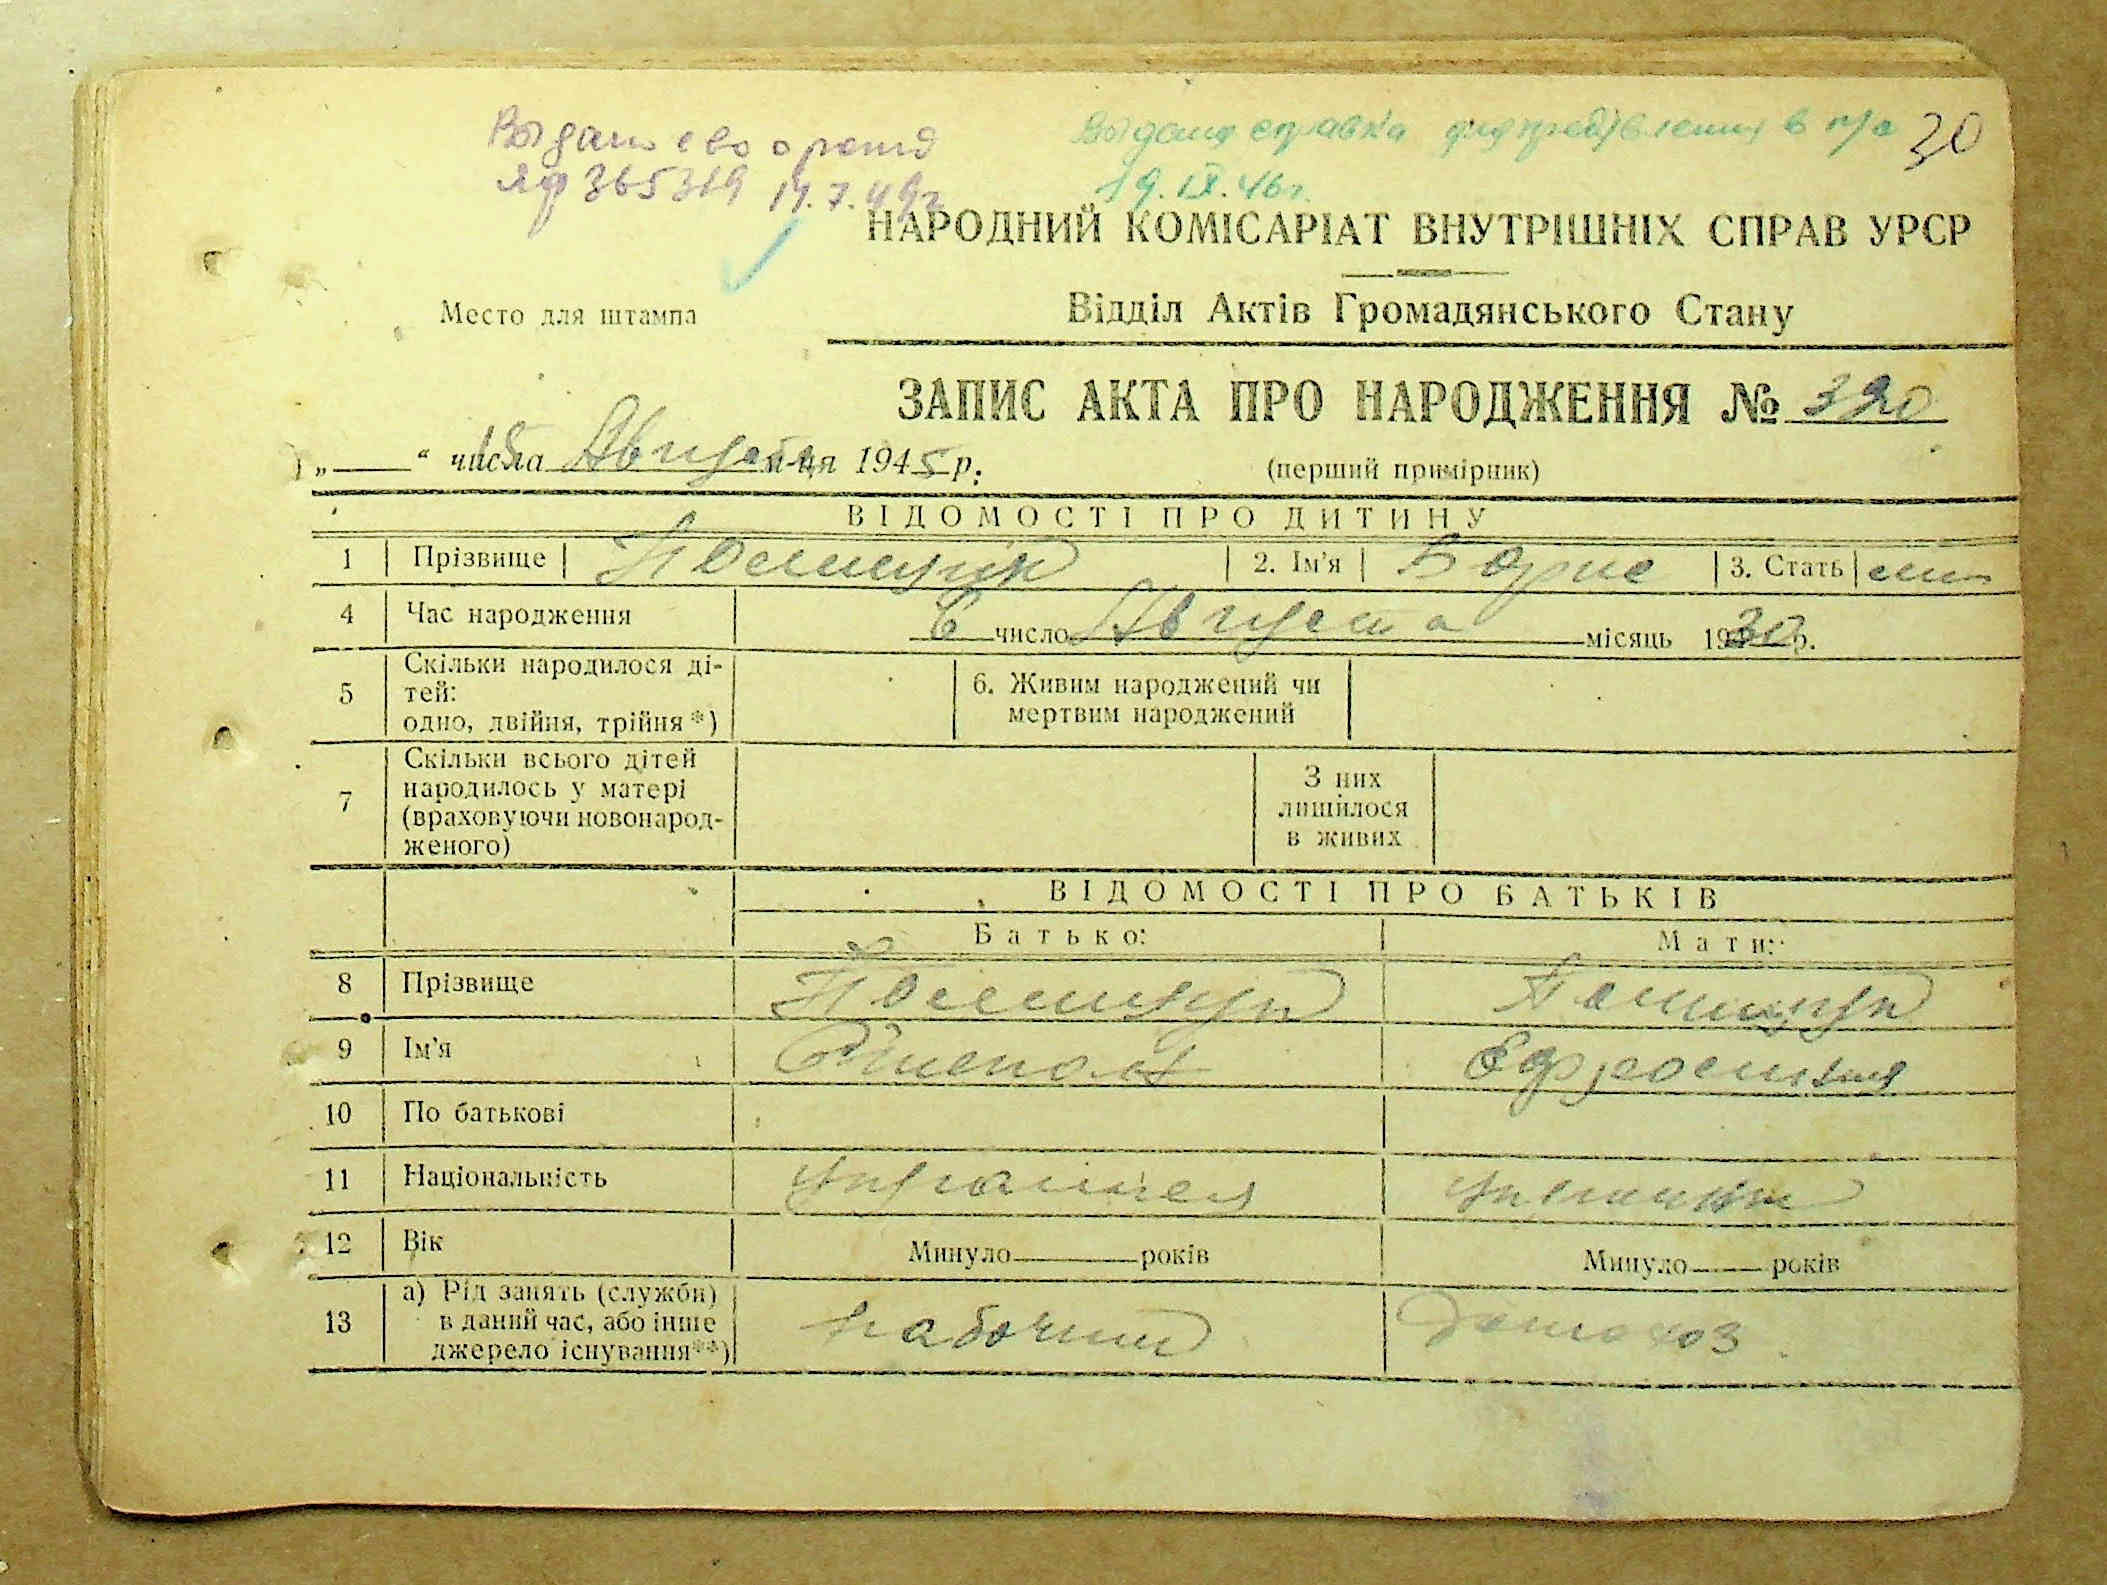 Выдано св о рожд
ЯФ 365319 14.7.49г
Выдана справка для предъявления в п/с
19.IX.46г.
30
НАРОДНИЙ КОМІСАРІАТ ВНУТРІШНІХ СПРАВ УРСР
Место для штампа
Відділ Актів Громадянського Стану
ЗАПИС АКТА ПРО НАРОДЖЕННЯ № 320
„ “ числа Августа м-ця 1945 р.
(перший примірник)
ВІДОМОСТІ ПРО ДИТИНУ
1 Прізвище 2. Ім'я Борис 3. Стать
4 Час народження 6 число Августа місяць 1930 р.
5 Скільки народилося ді-
тей:
одно, двійня, трійня*)
6. Живим народжений чи
мертвим народжений
7 Скільки всього дітей
народилось у матері
(враховуючи новонарод-
женого)
З них
лишилося
в живих
ВІДОМОСТІ ПРО БАТЬКІВ
Батько: Мати:
8 Прізвище
9 Ім'я Ефросиния
10 По батькові
11 Національність
12 Вік Минуло років Минуло років
13 а) Рід занять (служби)
в даний час, або інше
джерело існування**)
рабочий домохоз